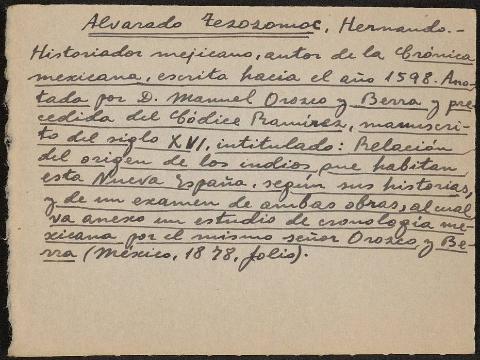 Alvarado Tezozomoc, Hernando.-
Historiador mejicano, autor de la Crónica
mexicana, escrita hacia el año 1598. Ano-
tada por D. Manuel Orozco y Berra y pre-
cedida del Códice Ramírez, manuscri-
to del siglo XVI, intitulado: Relación
del origen de los indios que habitan
esta Nueva España, según sus historias,
y de un examen de ambas obras, al cual
va anexo un estudio de cronología me-
xicana por el mismo señor Orozco y Be-
rra (México, 1878, folio).